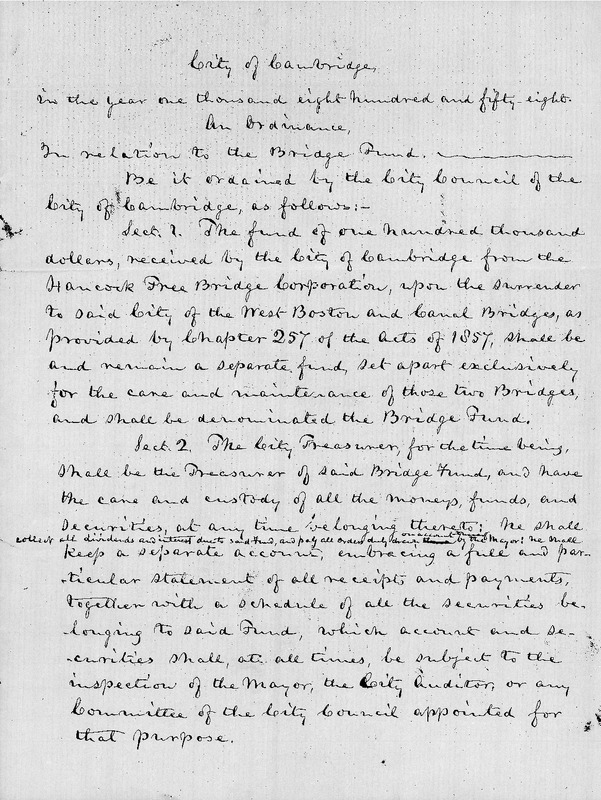 City of Cambridge,
in the year one thousand eight hundred and fifty-eight.
An Ordinance,
In relation to the Bridge Fund.
Be it ordained by the City Council of the
City of Cambridge, as follows:-
Sect. 1. The fund of one hundred thousand
dollars, received by the City of Cambridge from the
Hancock Free Bridge Corporation, upon the surrender
to said City of the West Boston and Canal Bridges, as
provided by Chapter 257 of the Acts of 1857, shall be
and remain a separate fund, set apart exclusively
for the care and maintenance of those two Bridges,
and shall be denominated the Bridge Fund.
Sect. 2. The City Treasurer, for the time being,
shall be the Treasurer of said Bridge Fund, and have
the care and custody of all the moneys, funds, and
securities, at any time belonging thereto; he shall
collect all dividends and interest due to said Fund, and pay all orders duly by the Mayor; he shall
keep a separate account, embracing a full and par-
-ticular statement of all receipts and payments,
together with a schedule of all the securities be-
-longing to said Fund, which account and se-
-curities shall, at all times, be subject to the
inspection of the Mayor, the City Auditor, or any
Committee of the City Council appointed for
that purpose.